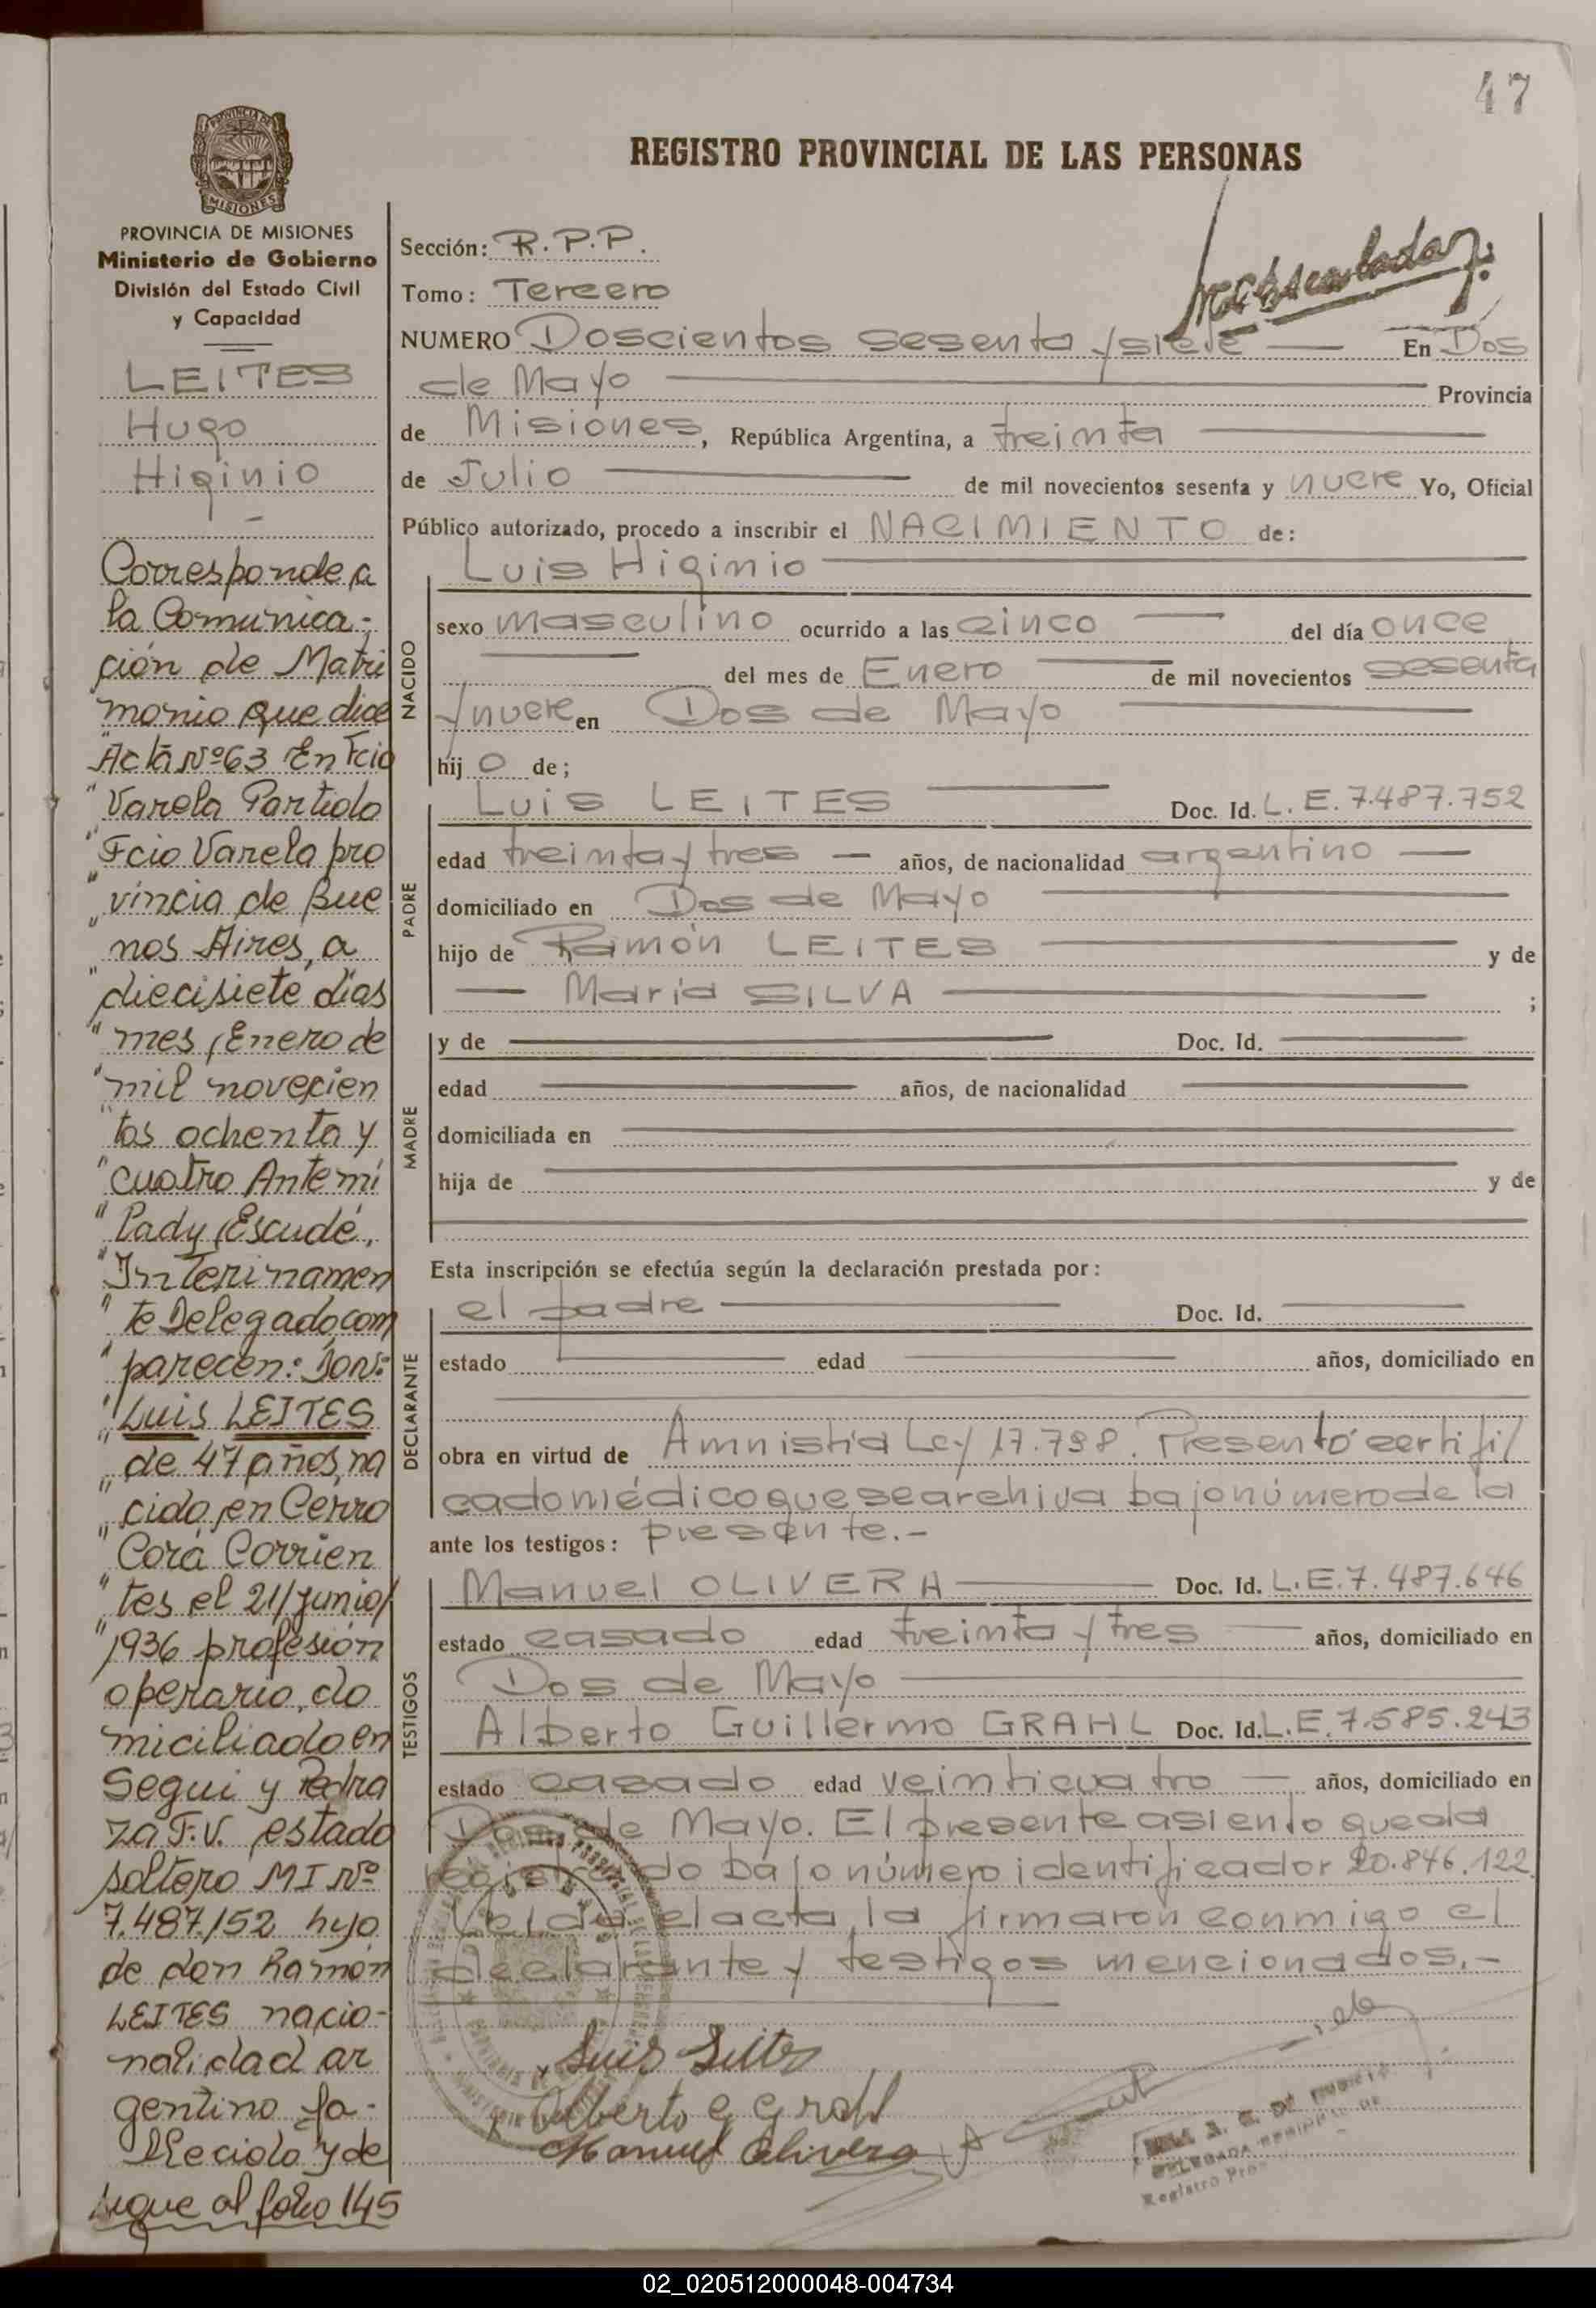 47
REGISTRO PROVINCIAL DE LAS PERSONAS
PROVINCIA DE MISIONES
Ministerio de Gobierno
División del Estado Civil
y Capacidad
LEITES
Hugo
Higinio
Corresponde a
la Comunica-
ción de Matri
monio que dice
"Acta Nº 63 En Fcio
"Varela Partido
"Fcio Varela pro
"vincia de Bue
nos Aires, a
"diecisiete días
"mes Enero de
"mil novecien
"tos ochenta y
"cuatro Ante mí
"Lady Escudé,
"Interinamen
"te Delegado, com
"parecen: Don:
"Luis LEITES
"de 47 años, na
"cido en Cerro
"Corá Corrien
"tes el 21/junio/
"1936 profesión
operario, do
miciliado en
Segui y Pedra
za F.V. estado
soltero MI Nº
7.487.152 hijo
de don Ramón
LEITES nacio-
nalidad ar
gentino fa-
llecido y de
sigue al folio 145
Sección: R.P.P.
Tomo: Tercero
NUMERO Doscientos sesenta y siete — En Dos
de Mayo — Provincia
de Misiones, República Argentina, a treinta —
de Julio — de mil novecientos sesenta y nueve Yo, Oficial
Público autorizado, procedo a inscribir el NACIMIENTO de:
NACIDO
Luis Higinio —
sexo masculino ocurrido a las cinco — del día once
— del mes de Enero — de mil novecientos sesenta
y nueve en Dos de Mayo —
hij o de;
PADRE
Luis LEITES — Doc. Id. L.E. 7.487.752
edad treinta y tres — años, de nacionalidad argentino —
domiciliado en Dos de Mayo —
hijo de Ramón LEITES — y de
— María SILVA — ;
MADRE
y de — Doc. Id. —
edad — años, de nacionalidad —
domiciliada en —
hija de — y de
Esta inscripción se efectúa según la declaración prestada por:
DECLARANTE
el padre — Doc. Id. —
estado — edad — años, domiciliado en
obra en virtud de Amnistía Ley 17.798. Presentó certifi/
cado médico que se archiva bajo número de la
ante los testigos: presente.-
TESTIGOS
Manuel OLIVERA — Doc. Id. L.E. 7.487.646
estado casado edad treinta y tres — años, domiciliado en
Dos de Mayo —
Alberto Guillermo GRAHL Doc. Id. L.E. 7.585.243
estado casado edad veinticuatro — años, domiciliado en
Dos de Mayo. El presente asiento queda
registrado bajo número identificador 20.846.122
Leida el acta, la firmaron conmigo el
declarante y testigos mencionados.-
Luis Leites
Alberto G Grahl
Manuel Olivera
Registro
02_020512000048-004734